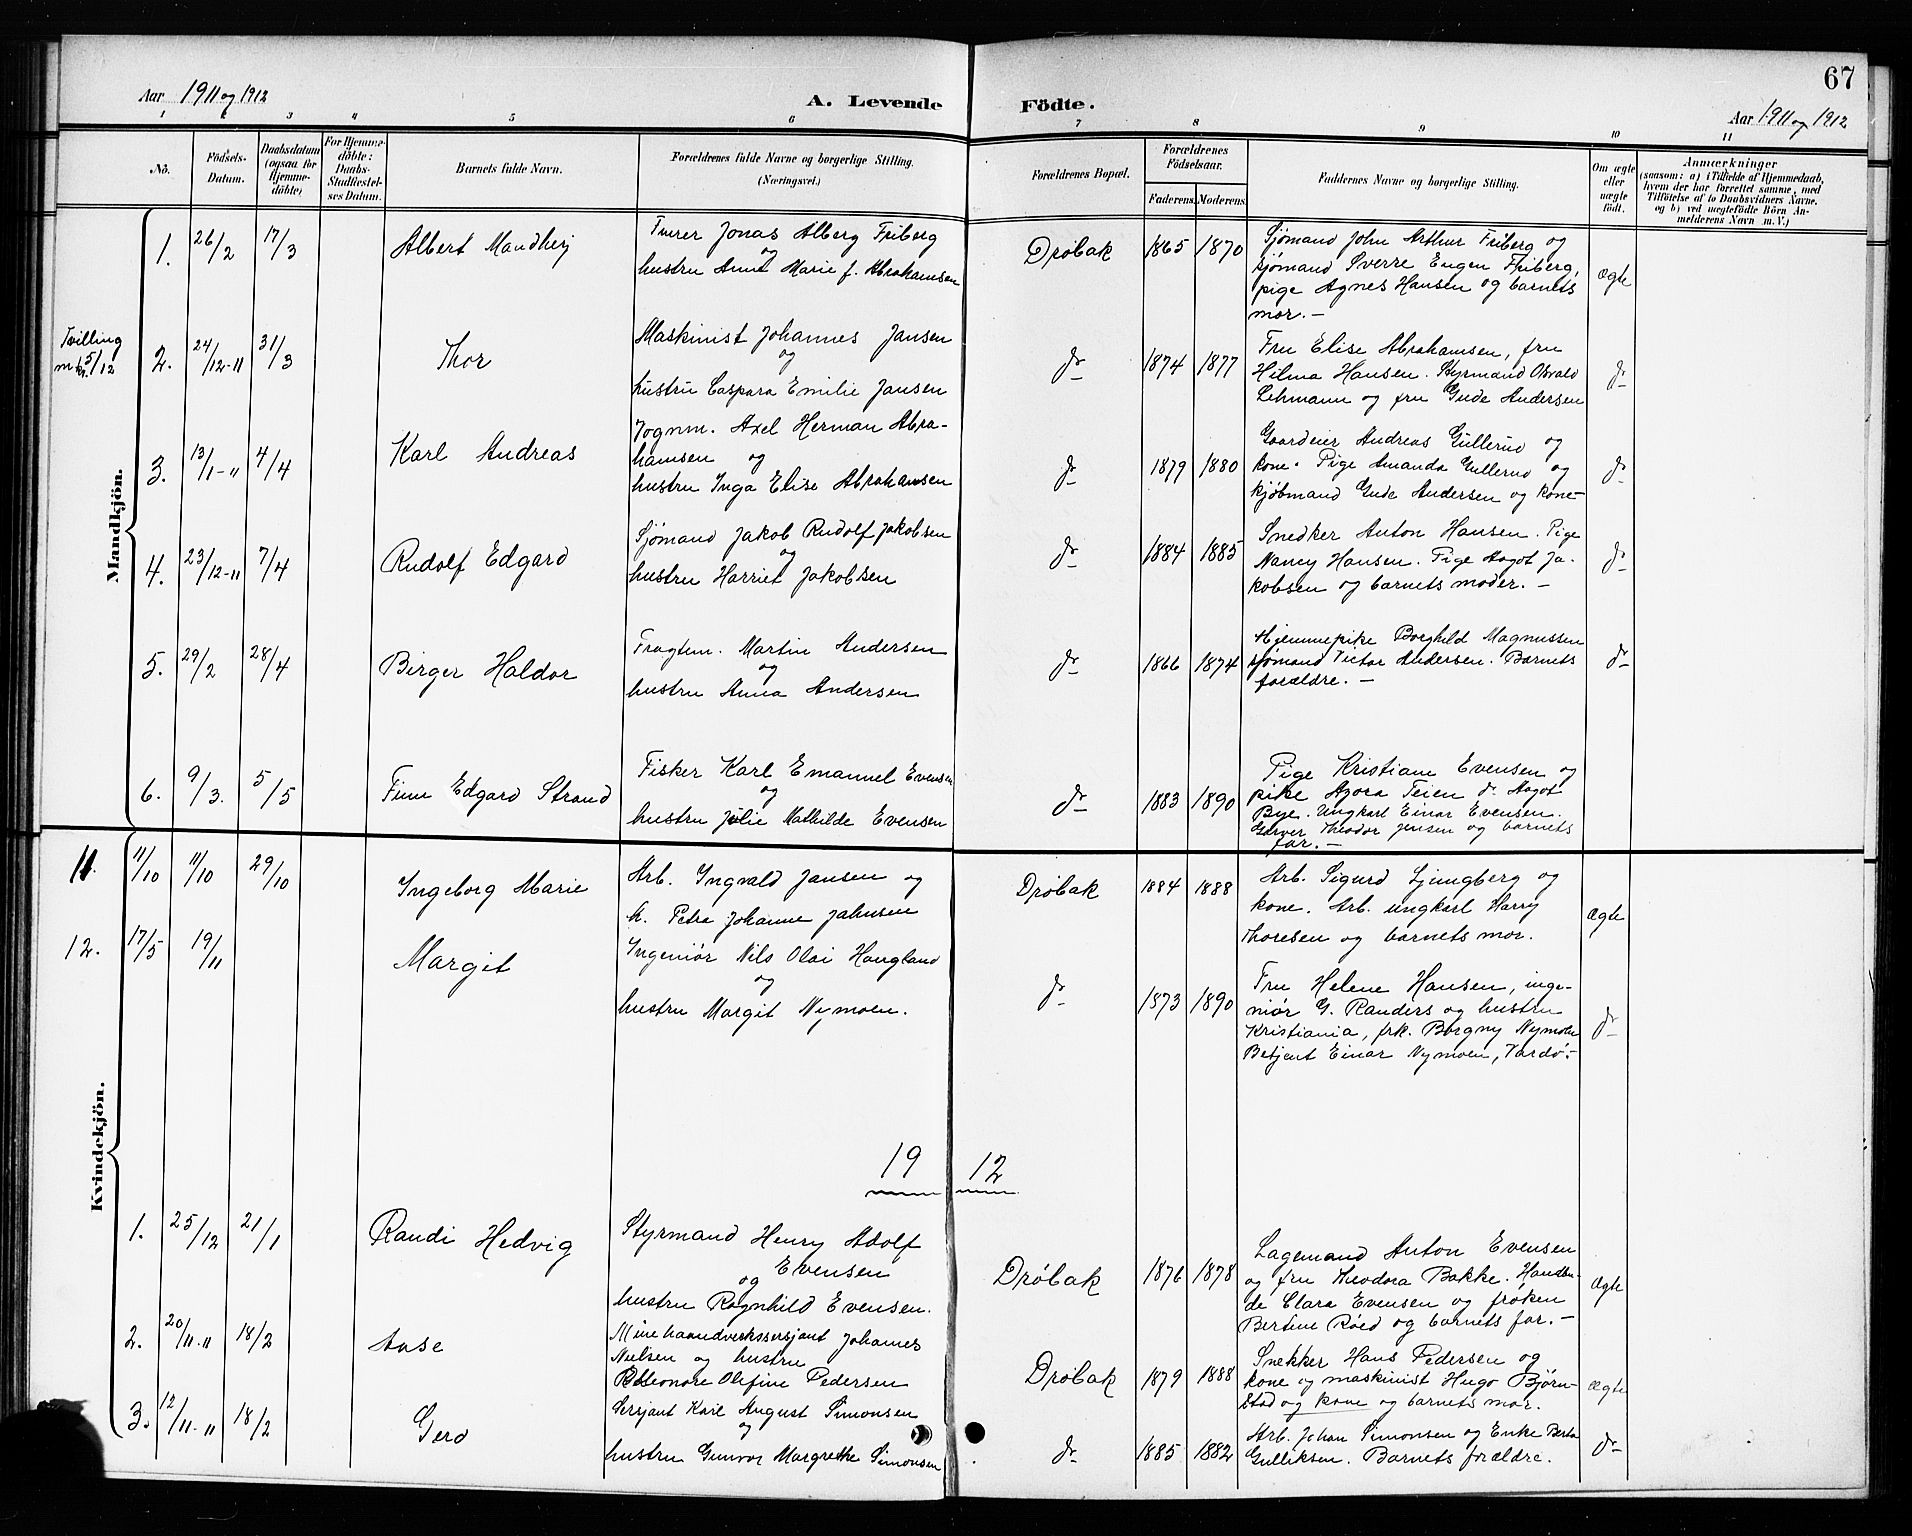 67
Aar 1911 og 1912
A. Levende Födte.
Aar 1911 og 1912
1 2 3 4 5 6 7 8 9 10 11
No.
Födsels-Datum.
Daabsdatum (ogsaa for Hjemmedöbte)
For Hjemmedöbte: Daabs-Stadfæstelses Datum.
Barnets fulde Navn.
Forældrenes fulde Navne og borgerlige Stilling. (Næringsvei.)
Forældrenes Bopæl.
Forældrenes Födselsaar.
Faderens.
Moderens.
Faddernes Navne og borgerlige Stilling.
Om ægte eller uægte födt.
Anmærkninger
(saasom: a) i Tilfælde af Hjemmedaab, hvem der har forrettet samme, med Tilföielse af to Daabsvidners Navne. og b) ved uægtefödte Börn Anmelderens Navn m. V.)
Mandkjön.
1. 26/2 17/3 Albert Mandherj
Furer Jonas Alberg Friberg
og
hustru Anna Marie f. Abrahamsen
Drøbak 1865 1870
Sjømand John Arthur Friberg og
sjømand Sverre Eugen Friberg,
pige Agnes Hansen og barnets
mor. —
ægte
Tvilling
5/12
2. 24/12-11 31/3 Thor
Maskinist Johannes Jansen
og
hustru Caspara Emilie Jansen
do 1874 1877
Fru Elise Abrahamsen, fru
Hilma Hansen. Styrmand Osvald
Lehmann og fru Gude Andersen
do
3. 13/1-11 4/4 Karl Andreas
Fognm. Axel Herman Abra-
hamsen og
hustru Inga Elise Abrahamsen
do 1879 1880
Gaardeier Andreas Gullerud og
kone. Pige Amanda Gullerud og
kjøbmand Gude Andersen og kone—
do
4. 23/12-11 7/4 Rudolf Edgard
Sjømand Jakob Rudolf Jakobsen
og
hustru Harriet Jakobsen
do 1884 1885
Snedker Anton Hansen. Pige
Nancy Hansen. Pige Aagot Ja-
kobsen og barnets moder. —
do
5. 29/2 28/4 Birger Haldor
Fragtem. Martin Andersen
og
hustru Anna Andersen
do 1866 1874
Hjemmepike Borghild Magnussen
sjømand Victor Andersen. Barnets
forældre. —
do
6. 9/3. 5/5 Finn Edgard Strand
Fisker Karl Emanuel Evensen
og
hustru Julie Mathilde Evensen
do 1883 1890
Pige Kristiane Evensen og
pike Agora Teien do. Aagot
Bye. Ungkarl Einar Evensen.
Garver Theodor Jensen og barnets
far. —
Kvindekjön.
11. 11/10 11/10 29/10 Ingeborg Marie
Arb. Ingvald Jansen og
h. Petra Johanne Jahnsen
Drøbak 1884 1888
Arb. Sigurd Ljungberg og
kone. Arb. ungkarl Harry
Thoresen og barnets mor.
ægte
12. 17/5 19/11 Margit
Ingeniør Nils Olai Haugland
og
hustru Margit Nymoen.
do 1873 1890
Fru Helene Hansen, inge-
niør G. Randers og hustru
Kristiania, frk. Borgny Nymoen
Betjent Einar Nymoen, Vardø.—
do
19 12
1. 25/12 21/1 Randi Hedvig
Styrmand Henry Adolf
Evensen
og
hustru Ragnhild Evensen.
Drøbak 1876 1878
Lagemand Anton Evensen
og fru Theodora Bakke. Handlen-
de Clara Evensen og frøken
Bertine Røed og barnets far. —
ægte
2. 20/11-11 18/2 Aase
Minehaandverkssersjant Johannes
Nielsen og hustru
Eleonore Olefine Pedersen
Drøbak 1879 1888
Snekker Hans Pedersen og
kone og maskinist Hugo Bjørn-
stad og kone og barnets mor.
ægte
3. 12/11-11 18/2 Gerd
Sersjant Karl August Simonsen
og
hustru Gunvor Margrethe Simonsen
do 1885 1882
Arb. Johan Simonsen og Enke Berta
Gulliksen. Barnets forældre.
do